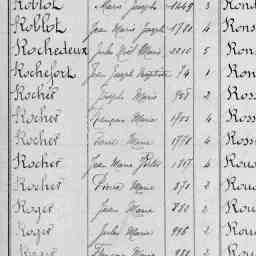 Roblot Marie Joseph 1449 3 Rond
Roblot Jean Marie Joseph 1780 4 Rons
Rochedeux Jules Noël Marie 2010 5 Ron
Rochefort Jean Joseph Baptiste 74 1 Ron
Rocher Joseph Marie 908 2 Ross
Rocher François Marie 1705 4 Ross
Rocher Pierre Marie 1770 4 Ross
Rocher Jean Marie 1817 4 Rou
Rocher Pierre Marie 870 2 Rou
Roger Jean Marie 850 2 Rou
Roger Jules Marie 996 2 Rou
Roger François Marie 2 Rou